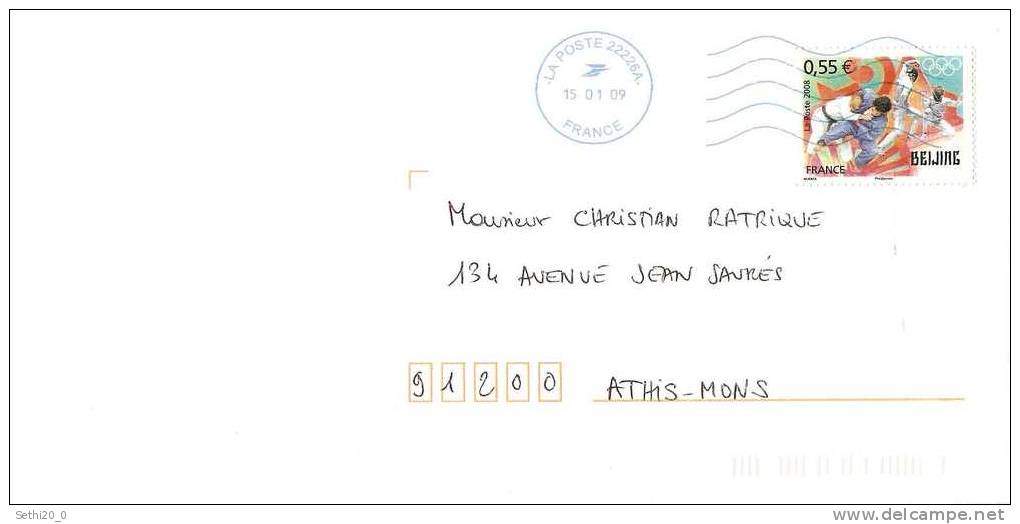 LA POSTE 22226A
15 01 09
FRANCE
0,55 €
La Poste 2008
FRANCE
BEIJING
Monsieur CHRISTIAN RATRIQUE
134 AVENUE JEAN JAURÉS
91200 ATHIS-MONS
Sethi20_0
www.delcampe.net